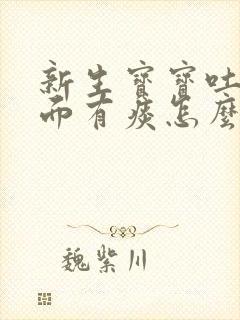 新生寶寶吐
而有痰怎麼
魏紫川